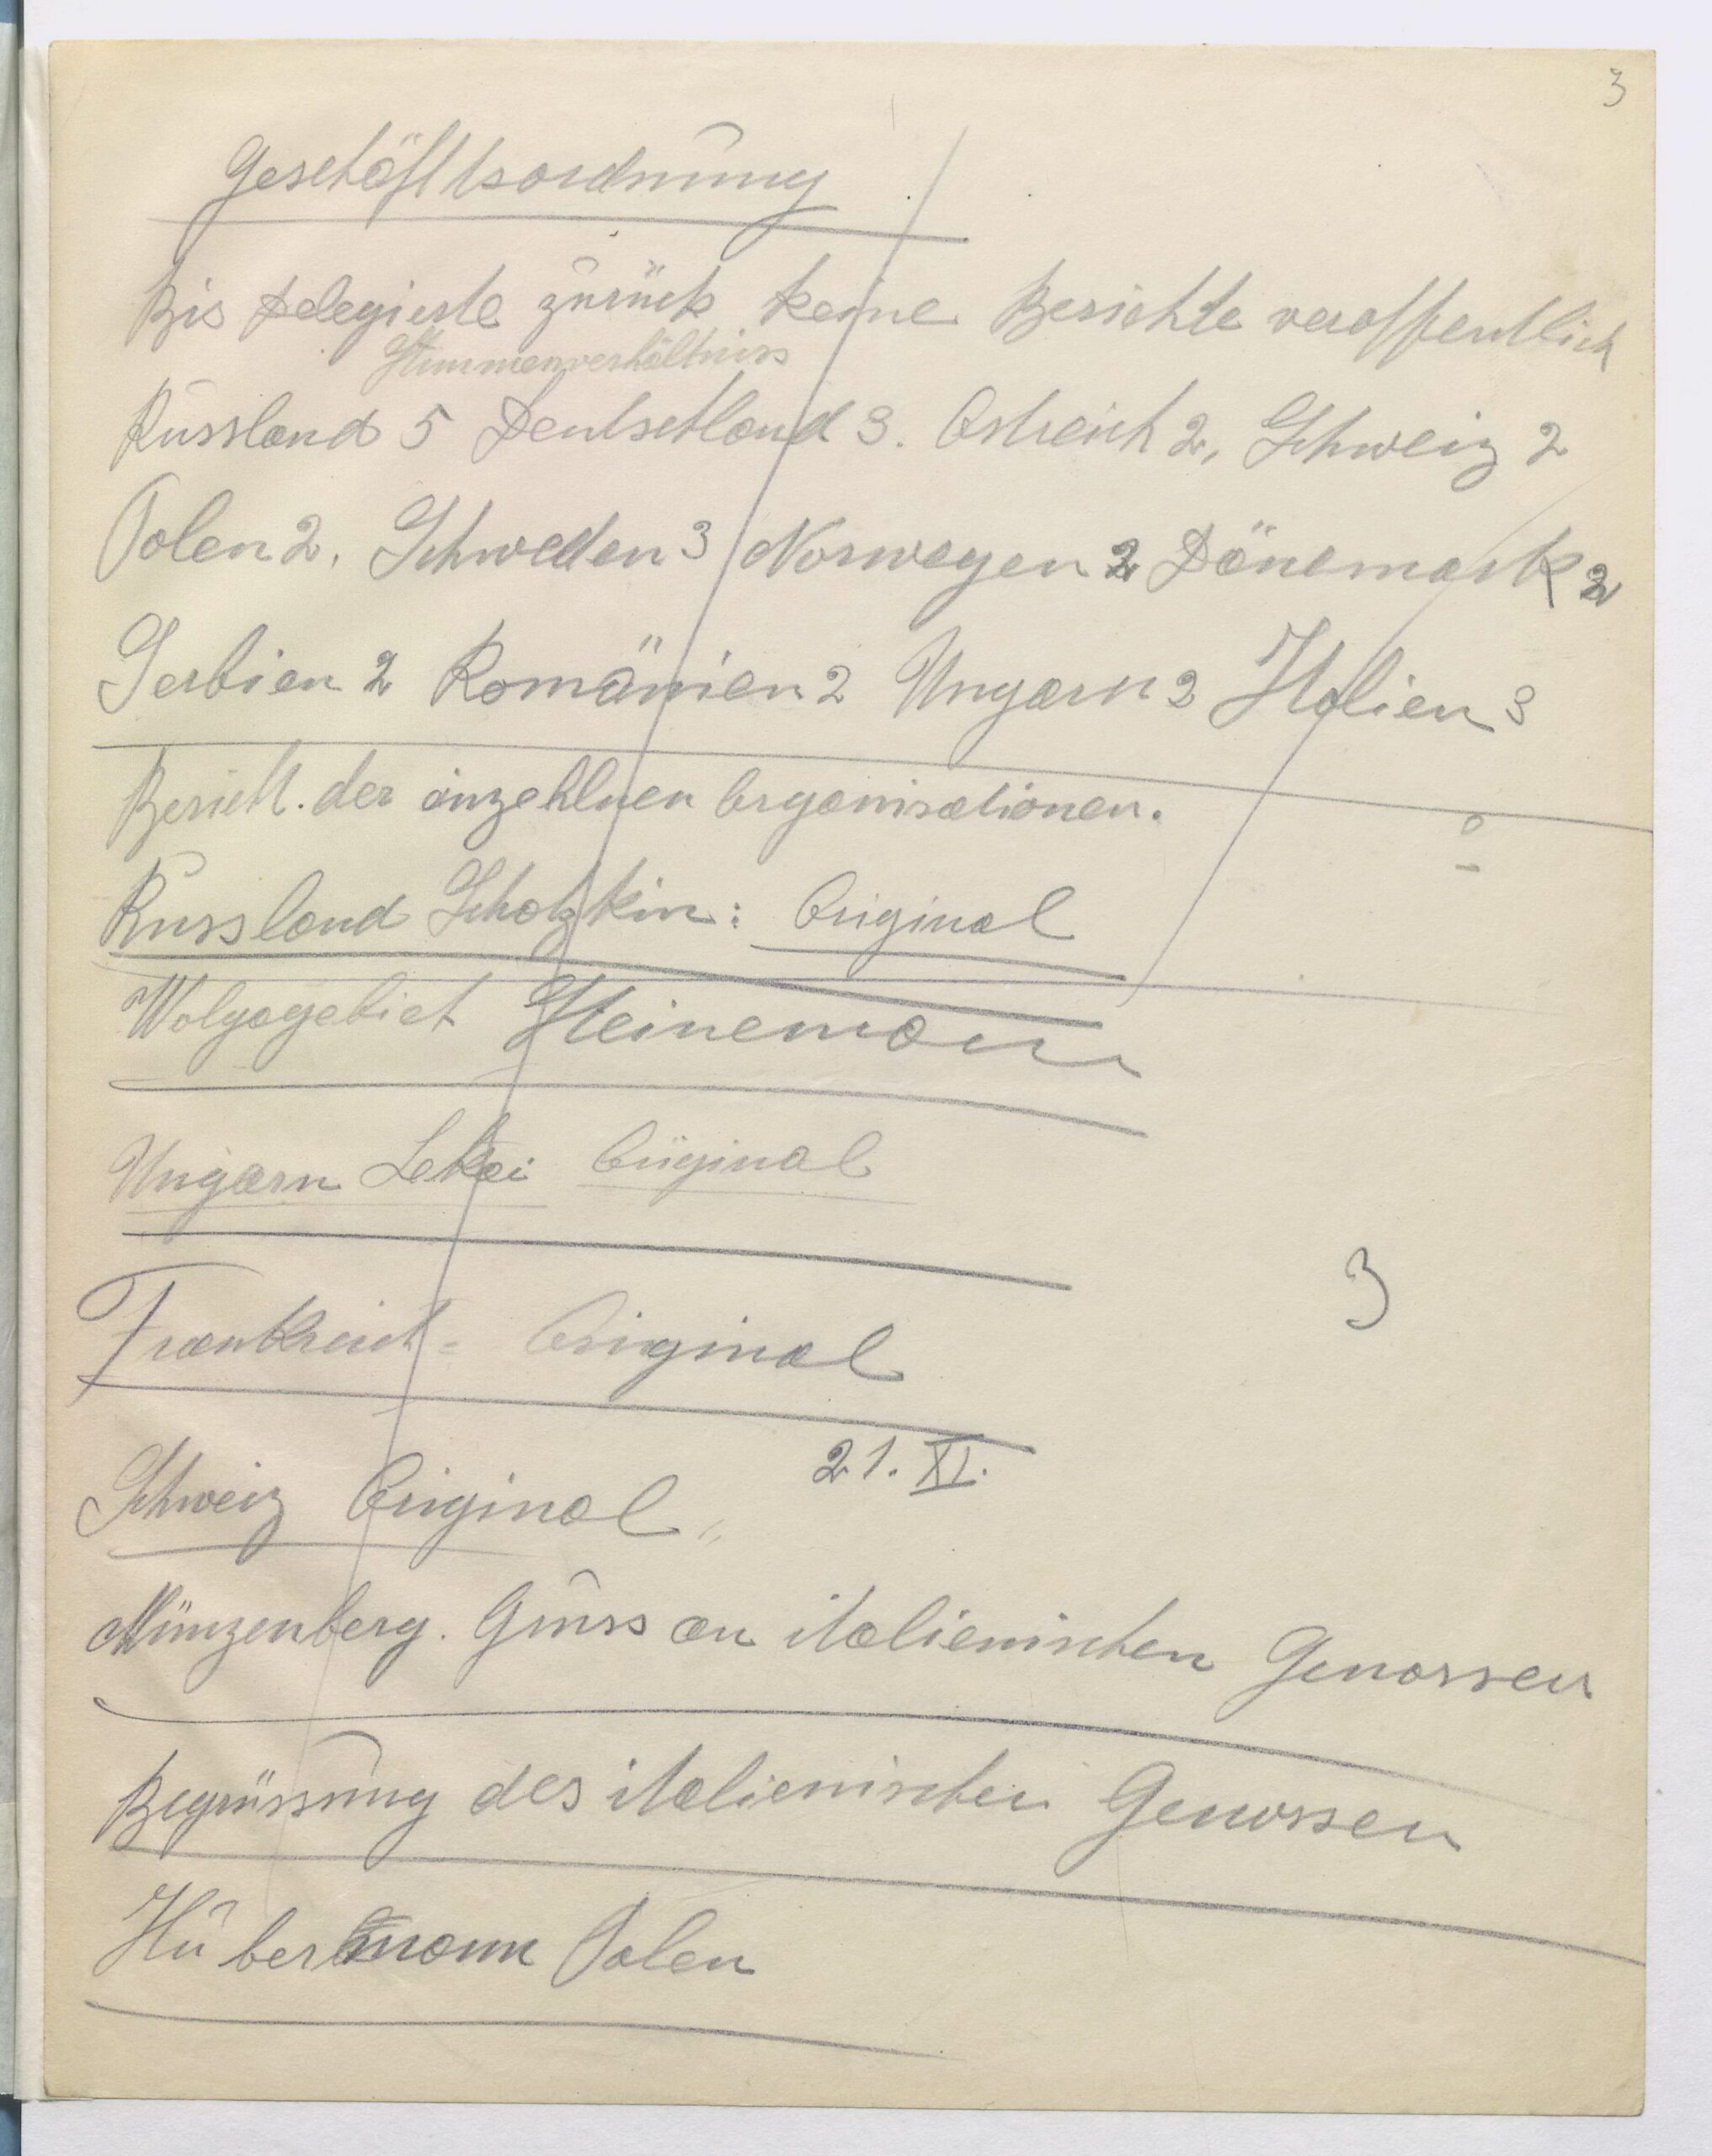 3
Geschäftsordnung
Bis Delegierte zurück keine Berichte veroffentlich
Stimmenverhältniss
Russland 5 Deutschland 3. Ostreich 2, Schweiz 2
Polen 2. Schweden 3 Norwegen 2 Dänemark 2
Serbien 2 Romänien 2 Ungarn 2 Italien 3
Bericht. der einzehlnen Organisationen.
Russland Schatzkin: Original
Wolgagebiet Steinemann
Ungarn Lekai Original
Frankreich = Original
3
21. XI.
Schweiz Original
Münzenberg. Gruss an italienischen Genossen
Begrüssung des italienischen Genossen
Hubermann Polen